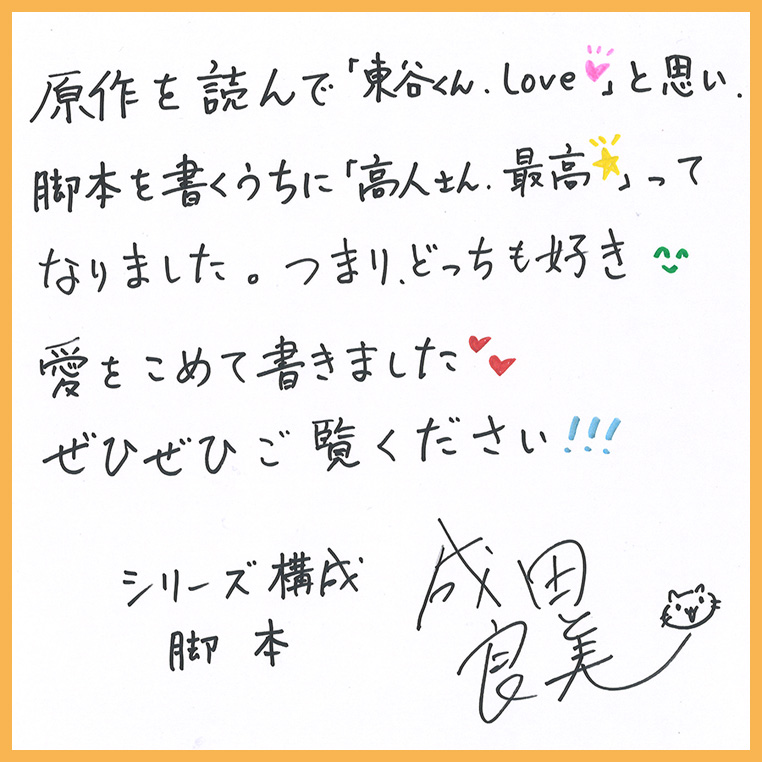 原作を読んで「東谷くん、Love💗」と思い、
脚本を書くうちに「高人さん、最高⭐」って
なりました。つまり、どっちも好き
愛をこめて書きました💕
ぜひぜひご覧ください!!!
シリーズ構成
脚本
成田
良美